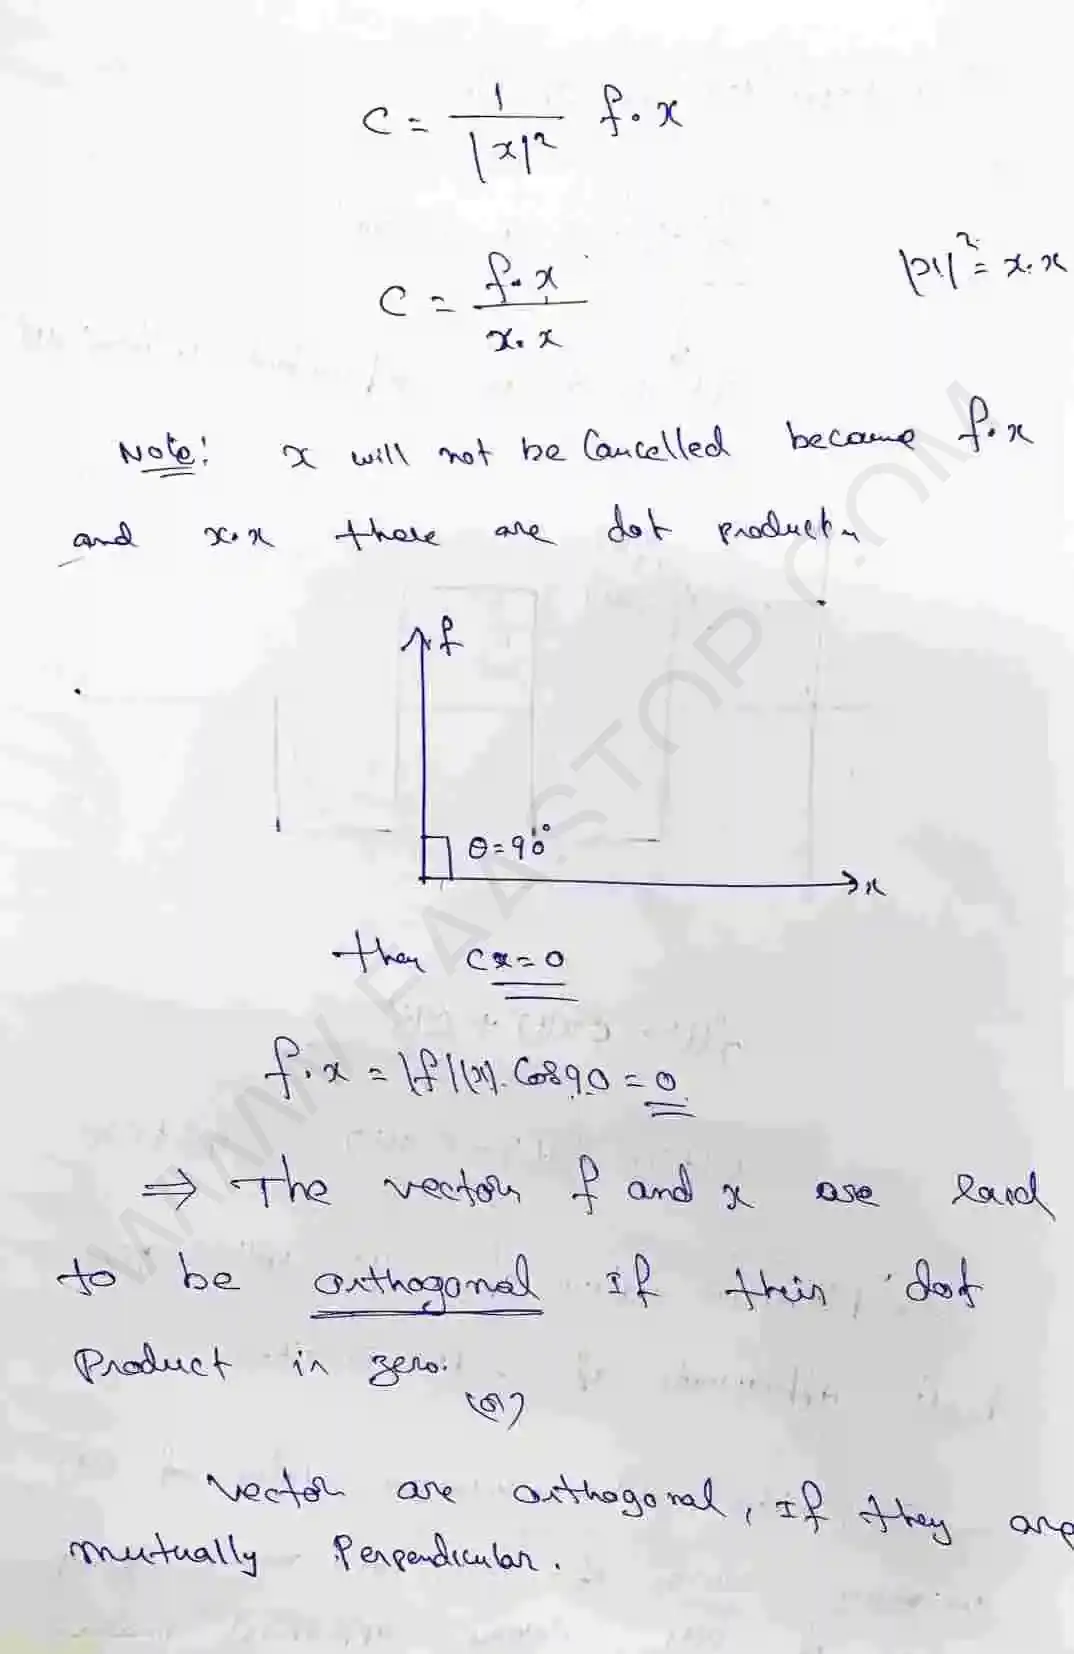 C = 1/|x|² f·x
C = f·x / x·x
|x|² = x·x
Note: x will not be Cancelled because f·x
and x·x these are dot product,
f
θ=90°
x
then cx=0
f·x = |f||x|. Cos90 = 0
⇒ The vectors f and x are said
to be orthogonal If this dot
Product is zero.
(or)
Vector are orthogonal, If they are
mutually Perpendicular.
WWW.FAASTOP.COM